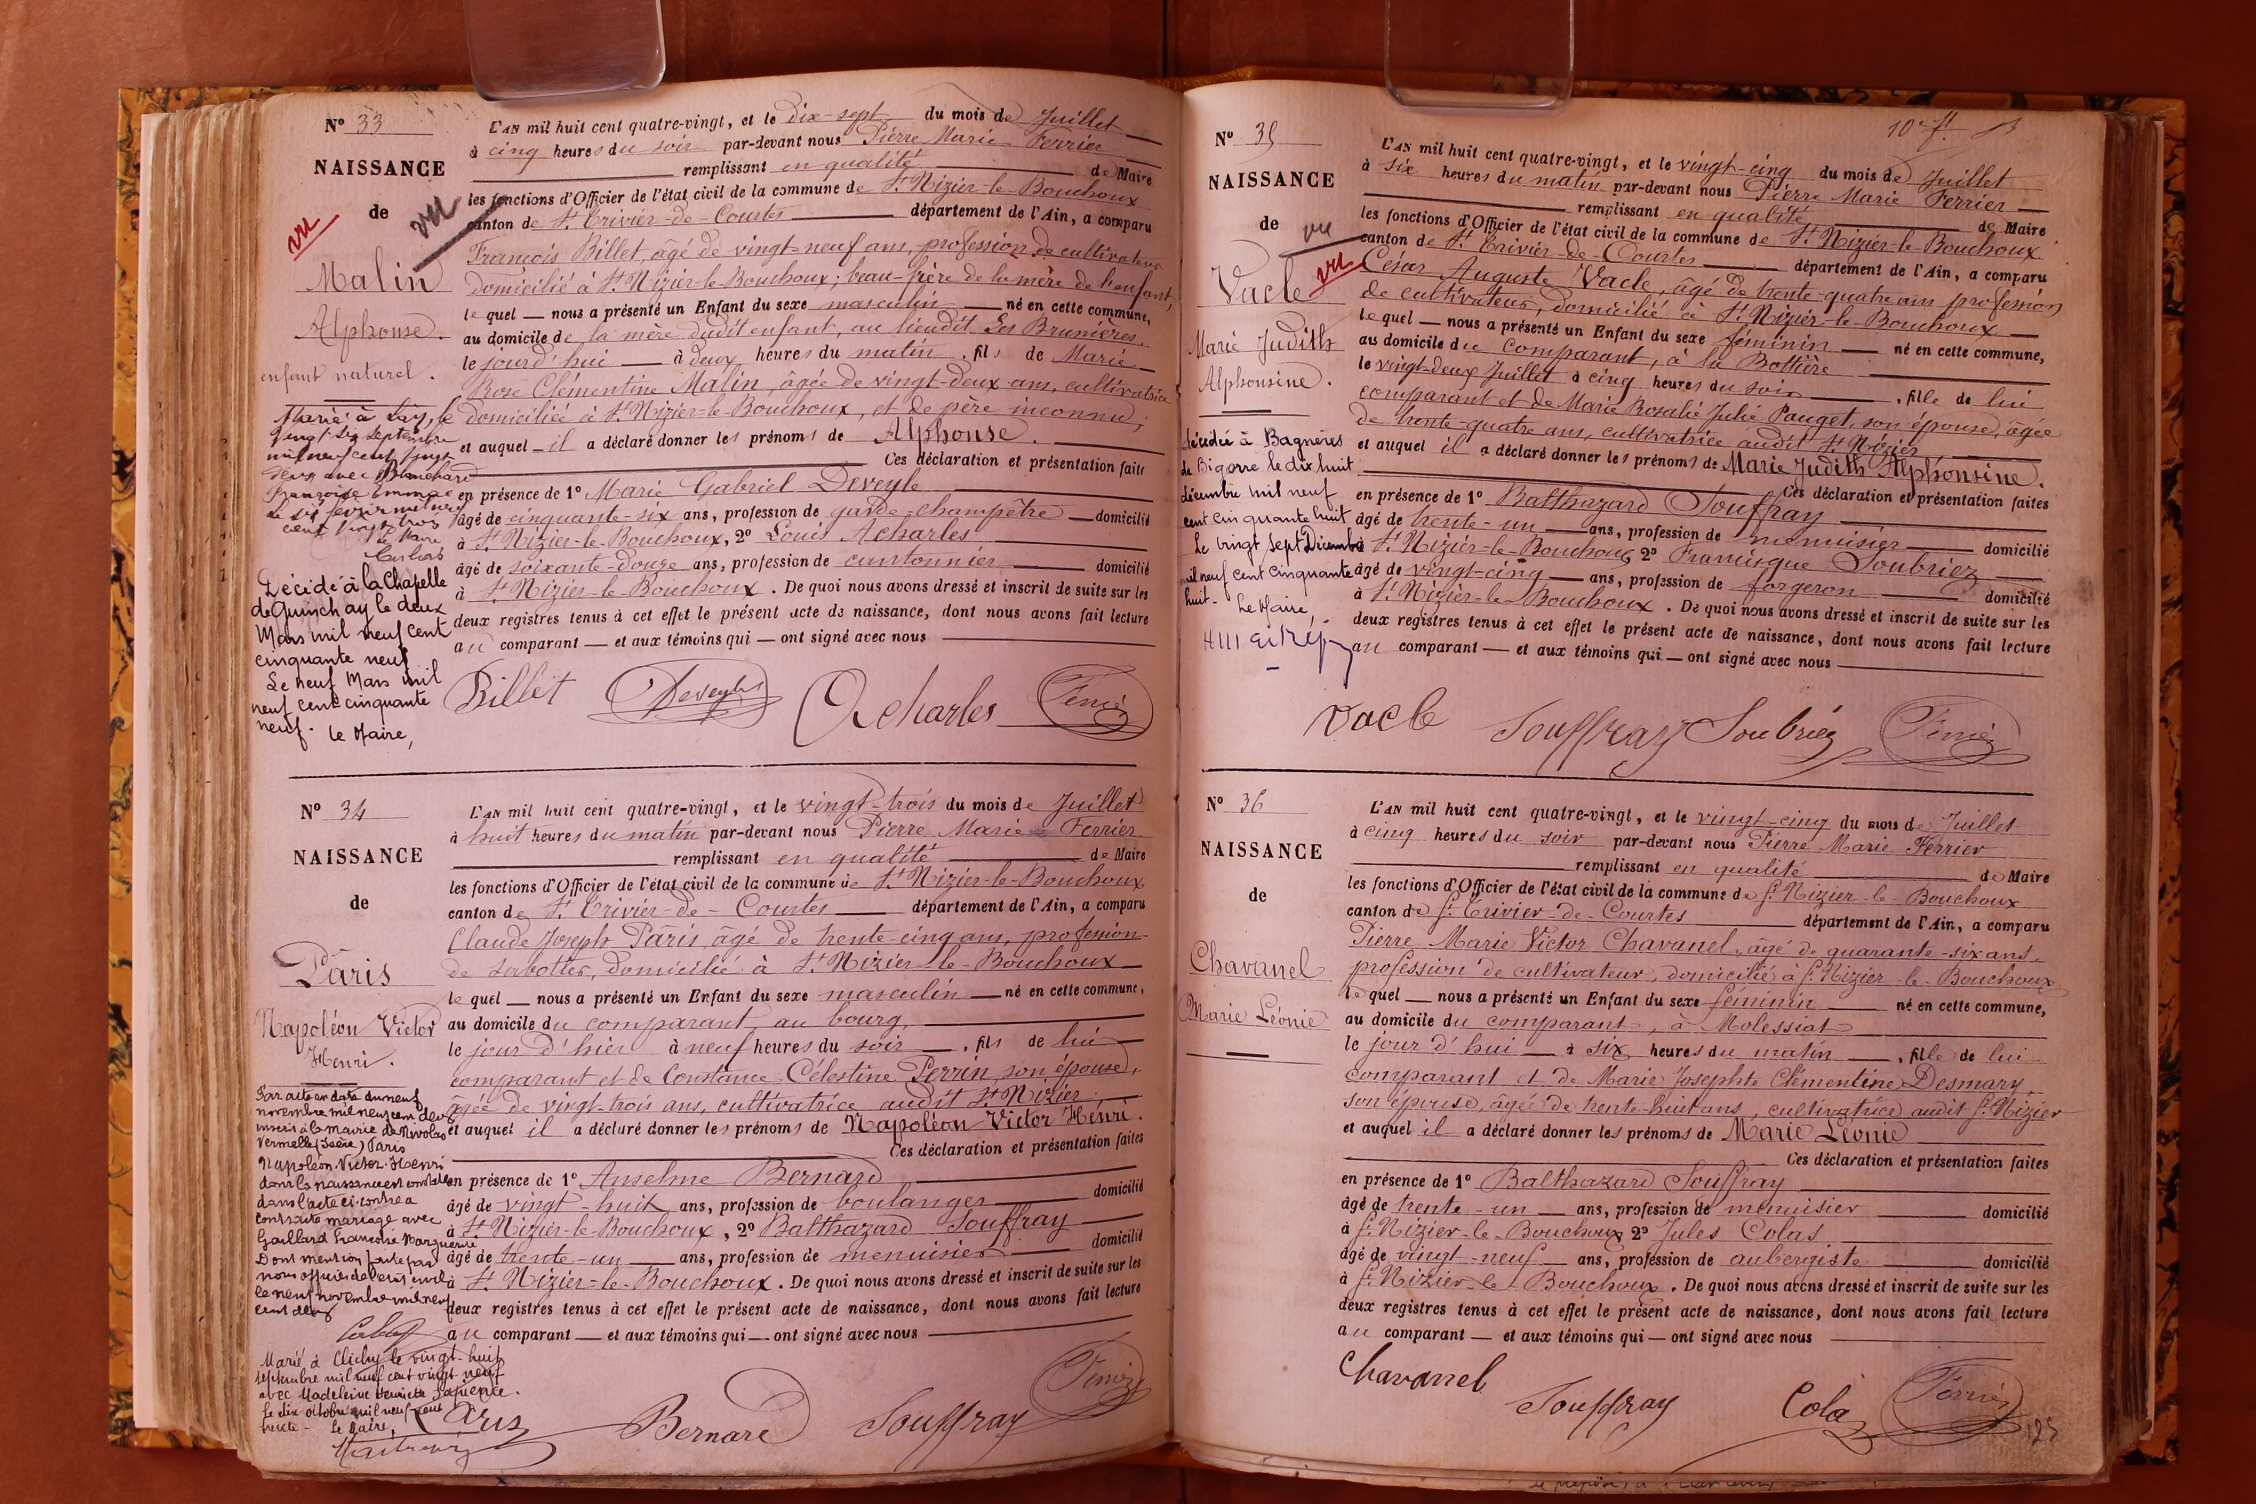 N° 33
NAISSANCE
de
vu
vu
Malin
Alphonse.
enfant naturel.
Marié à Lay, le
vingt six septembre
mil neuf cent vingt
deux avec Blanchard
Françoise Emma
le six février mil neuf
cent vingt trois
Le Maire
Décédé à la Chapelle
de Guinchay le deux
Mars mil neuf cent
cinquante neuf
Le neuf Mars mil
neuf cent cinquante
neuf. Le Maire,
L'AN mil huit cent quatre-vingt, et le dix-sept du mois de Juillet
à cinq heures du soir par-devant nous Pierre Marie Ferrier
remplissant en qualité de Maire
les fonctions d'Officier de l'état civil de la commune de St Nizier-le-Bouchoux
canton de St Trivier-de-Courtes département de l'Ain, a comparu
François Billet, âgé de vingt-neuf ans, profession de cultivateur
domicilié à St Nizier-le-Bouchoux; beau-frère de la mère de l'enfant,
lequel nous a présenté un Enfant du sexe masculin né en cette commune,
au domicile de la mère dudit enfant, au lieudit Les Brunières.
le jourd'hui à deux heures du matin, fils de Marie
Rose Clémentine Malin, âgée de vingt-deux ans, cultivatrice
domiciliée à St Nizier-le-Bouchoux, et de père inconnu;
et auquel il a déclaré donner les prénoms de Alphonse.
Ces déclaration et présentation faite
en présence de 1° Marie Gabriel Deveyle
âgé de cinquante-six ans, profession de garde-champêtre domicilié
à St Nizier-le-Bouchoux, 2° Louis Acharles
âgé de soixante-douze ans, profession de cantonnier domicilié
à St Nizier-le-Bouchoux. De quoi nous avons dressé et inscrit de suite sur les
deux registres tenus à cet effet le présent acte de naissance, dont nous avons fait lecture
au comparant et aux témoins qui ont signé avec nous
Billet Deveyle Acharles Ferrier
N° 34
NAISSANCE
de
Pâris
Napoléon Victor
Henri.
Par acte en date du neuf
novembre mil neuf cent deux
inscrit à la mairie de Nivolas
Vermelle (Isère) Paris
Napoléon Victor Henri
dont la naissance est constatée
dans l'acte ci-contre a
contracté mariage avec
Gaillard Françoise Marguerite
Dont mention faite par
nous officier de l'état civil
le neuf novembre mil neuf
cent deux
Marié à Clichy le vingt-huit
septembre mil neuf cent vingt neuf
avec Madeleine Henriette Sapience.
Le dix octobre mil neuf cent
trente - Le Maire,
L'AN mil huit cent quatre-vingt, et le vingt-trois du mois de Juillet
à huit heures du matin par-devant nous Pierre Marie Ferrier
remplissant en qualité de Maire
les fonctions d'Officier de l'état civil de la commune de St Nizier-le-Bouchoux
canton de St Trivier-de-Courtes département de l'Ain, a comparu
Claude Joseph Pâris, âgé de trente-cinq ans, profession
de sabotier, domicilié à St Nizier-le-Bouchoux
lequel nous a présenté un Enfant du sexe masculin né en cette commune,
au domicile du comparant, au bourg,
le jour d'hier à neuf heures du soir, fils de lui
comparant et de Constance Célestine Perrin, son épouse,
âgée de vingt-trois ans, cultivatrice audit St Nizier
et auquel il a déclaré donner les prénoms de Napoléon Victor Henri.
Ces déclaration et présentation faites
en présence de 1° Anselme Bernard
âgé de vingt-huit ans, profession de boulanger domicilié
à St Nizier-le-Bouchoux, 2° Balthazard Souffray
âgé de trente-un ans, profession de menuisier domicilié
à St Nizier-le-Bouchoux. De quoi nous avons dressé et inscrit de suite sur les
deux registres tenus à cet effet le présent acte de naissance, dont nous avons fait lecture
au comparant et aux témoins qui ont signé avec nous
Paris Bernard Souffray Ferrier
10e ft
N° 35
NAISSANCE
de
vu
vu
Vacle
Marie Judith
Alphonsine.
décédée à Bagnères
de Bigorre le dix huit
décembre mil neuf
cent cinquante huit
Le vingt sept Décembre
mil neuf cent cinquante
huit - Le Maire
L'AN mil huit cent quatre-vingt, et le vingt-cinq du mois de Juillet
à six heures du matin par-devant nous Pierre Marie Ferrier
remplissant en qualité de Maire
les fonctions d'Officier de l'état civil de la commune de St Nizier-le-Bouchoux
canton de St Trivier-de-Courtes département de l'Ain, a comparu
César Auguste Vacle, âgé de trente-quatre ans profession
de cultivateur, domicilié à St Nizier-le-Bouchoux
lequel nous a présenté un Enfant du sexe féminin né en cette commune,
au domicile du comparant, à la Bottière
le vingt-deux Juillet à cinq heures du soir, fille de lui
comparant et de Marie Rosalie Julie Pauget, son épouse, âgée
de trente-quatre ans, cultivatrice audit St Nizier
et auquel il a déclaré donner les prénoms de Marie Judith Alphonsine.
Ces déclaration et présentation faites
en présence de 1° Balthazard Souffray
âgé de trente-un ans, profession de menuisier domicilié
à St Nizier-le-Bouchoux 2° Francisque Soubriez
âgé de vingt-cinq ans, profession de forgeron domicilié
à St Nizier-le-Bouchoux. De quoi nous avons dressé et inscrit de suite sur les
deux registres tenus à cet effet le présent acte de naissance, dont nous avons fait lecture
au comparant et aux témoins qui ont signé avec nous
Vacle Souffray Soubriez Ferrier
N° 36
NAISSANCE
de
Chavanel
Marie Léonie
L'AN mil huit cent quatre-vingt, et le vingt-cinq du mois de Juillet
à cinq heures du soir par-devant nous Pierre Marie Ferrier
remplissant en qualité de Maire
les fonctions d'Officier de l'état civil de la commune de St Nizier-le-Bouchoux
canton de St Trivier-de-Courtes département de l'Ain, a comparu
Pierre Marie Victor Chavanel, âgé de quarante-six ans
profession de cultivateur, domicilié à St Nizier-le-Bouchoux
lequel nous a présenté un Enfant du sexe féminin né en cette commune,
au domicile du comparant, à Molessiat
le jour d'hui à six heures du matin, fille de lui
comparant et de Marie Josephte Clémentine Desmary
son épouse, âgée de trente-huit ans, cultivatrice audit St Nizier
et auquel il a déclaré donner les prénoms de Marie Léonie
Ces déclaration et présentation faites
en présence de 1° Balthazard Souffray
âgé de trente-un ans, profession de menuisier domicilié
à St Nizier-le-Bouchoux 2° Jules Colas
âgé de vingt-neuf ans, profession de aubergiste domicilié
à St Nizier-le-Bouchoux. De quoi nous avons dressé et inscrit de suite sur les
deux registres tenus à cet effet le présent acte de naissance, dont nous avons fait lecture
au comparant et aux témoins qui ont signé avec nous
Chavanel Souffray Colas Ferrier
125